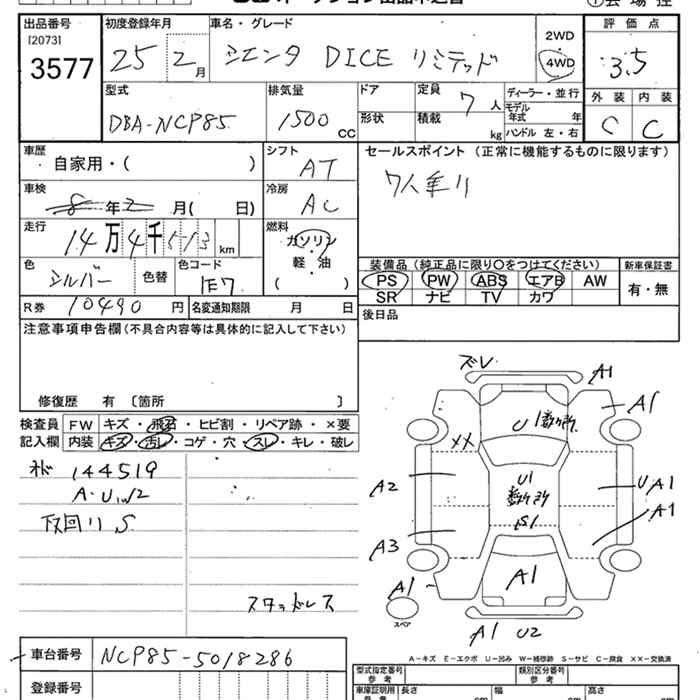 出品番号 初度登録年月 車名・グレード 評価点
[2073]
3577 25 2月 シエンタ DICE リミテッド 2WD 4WD 3.5
外装 内装
C C
型式 排気量 ドア 定員 ディーラー・並行
DBA-NCP85 1500 CC 形状 7人 積載 kg モデル年式 年 ハンドル 左・右
車歴 シフト セールスポイント (正常に機能するものに限ります)
・自家用・( ) AT
車検 冷房
8年2月( 日) AC
走行 燃料
14万4千513 km ガソリン・軽・油 ( )
色 色替 色コード
シルバー 1E7
装備品 (純正品に限り〇をつけてください) 新車保証書
PS PW ABS エアB AW 有・無
SR ナビ TV カワ
R券 10490円 名変通知期限 月 日
後日品
注意事項申告欄(不具合内容等は具体的に記入して下さい)
修復歴 有 〔箇所 〕
検査員記入欄 FW キズ・飛石・ヒビ割・リペア跡・×要
内装 キズ・汚レ・コゲ・穴・スレ・キレ・破レ
144519
A・U
下回り S
スタッドレス
A1
A1
U
××
A2
U1
UA1
A1
S1
A3
A1
A1
スペア
A1 U2
A-キズ E-エクボ U-凹み W-補修跡 S-サビ C-腐食 ××-交換済
車台番号 NCP85-5018286
登録番号
型式指定番号 参考 類別区分番号 参考
車庫証明用 参考 長さ cm 幅 cm 高さ cm